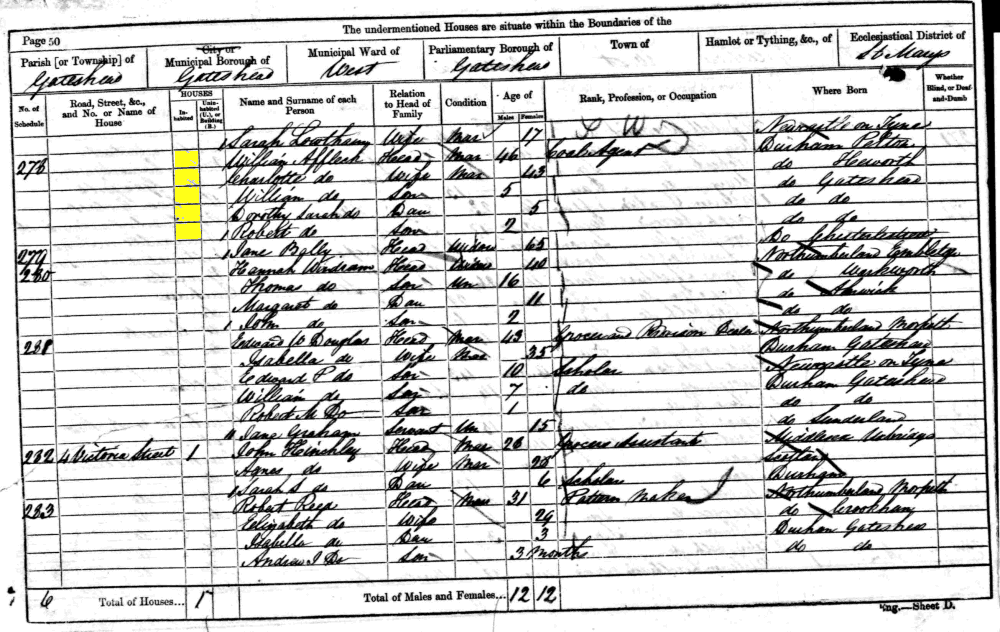 The undermentioned Houses are situate within the Boundaries of the
Page 50
Parish [or Township] of Gateshead
City or Municipal Borough of Gateshead
Municipal Ward of West
Parliamentary Borough of Gateshead
Town of
Hamlet or Tything, &c., of
Ecclesiastical District of St Marys
No. of Schedule
Road, Street, &c., and No. or Name of House
HOUSES
Inhabited
Uninhabited (U.), or Building (B.)
Name and Surname of each Person
Relation to Head of Family
Condition
Age of
Males
Females
Rank, Profession, or Occupation
Where Born
Whether Blind, or Deaf-and-Dumb
Sarah Lowtham Wife Mar 17 Newcastle on Tyne
William Affleck Head Mar 46 Coal Agent Durham Pelton
Charlotte do Wife Mar 43 do Heworth
William do Son 5 do Gateshead
Dorothy Sarah do Dau 5 do do
1 Robert do Son 2 do do
1 Jane Head Widow 65 Do
280 Hannah Head 40 Northumberland
Thomas do Son Un 16 do Warkworth
Margaret do Dau 11 do Alnwick
1 John do Son 2 do do
281 Edward W Douglas Head Mar 43 Grocer and Provision Dealer Northumberland Morpeth
Isabella do Wife Mar 35 Durham Gateshead
Edward P do Son 10 Scholar Newcastle on Tyne
William do Son 7 do Durham Gateshead
Robert M Do Son 1 do do
Jane Graham Servant Un 15 do Sunderland
282 4 Victoria Street 1 John Hinchley Head Mar 26 Grocers Assistant Middlesex Uxbridge
Agnes do Wife Mar 28 Scotland
1 Sarah S do Dau 6 Scholar Durham
283 Robert Head Mar 31 Pattern Maker Northumberland Morpeth
Elizabeth do Wife 29 do Crookham
Isabella do Dau 3 Durham Gateshead
Andrew J Do Son 3 months do do
6 Total of Houses... 1 Total of Males and Females... 12 12
Eng.—Sheet D.